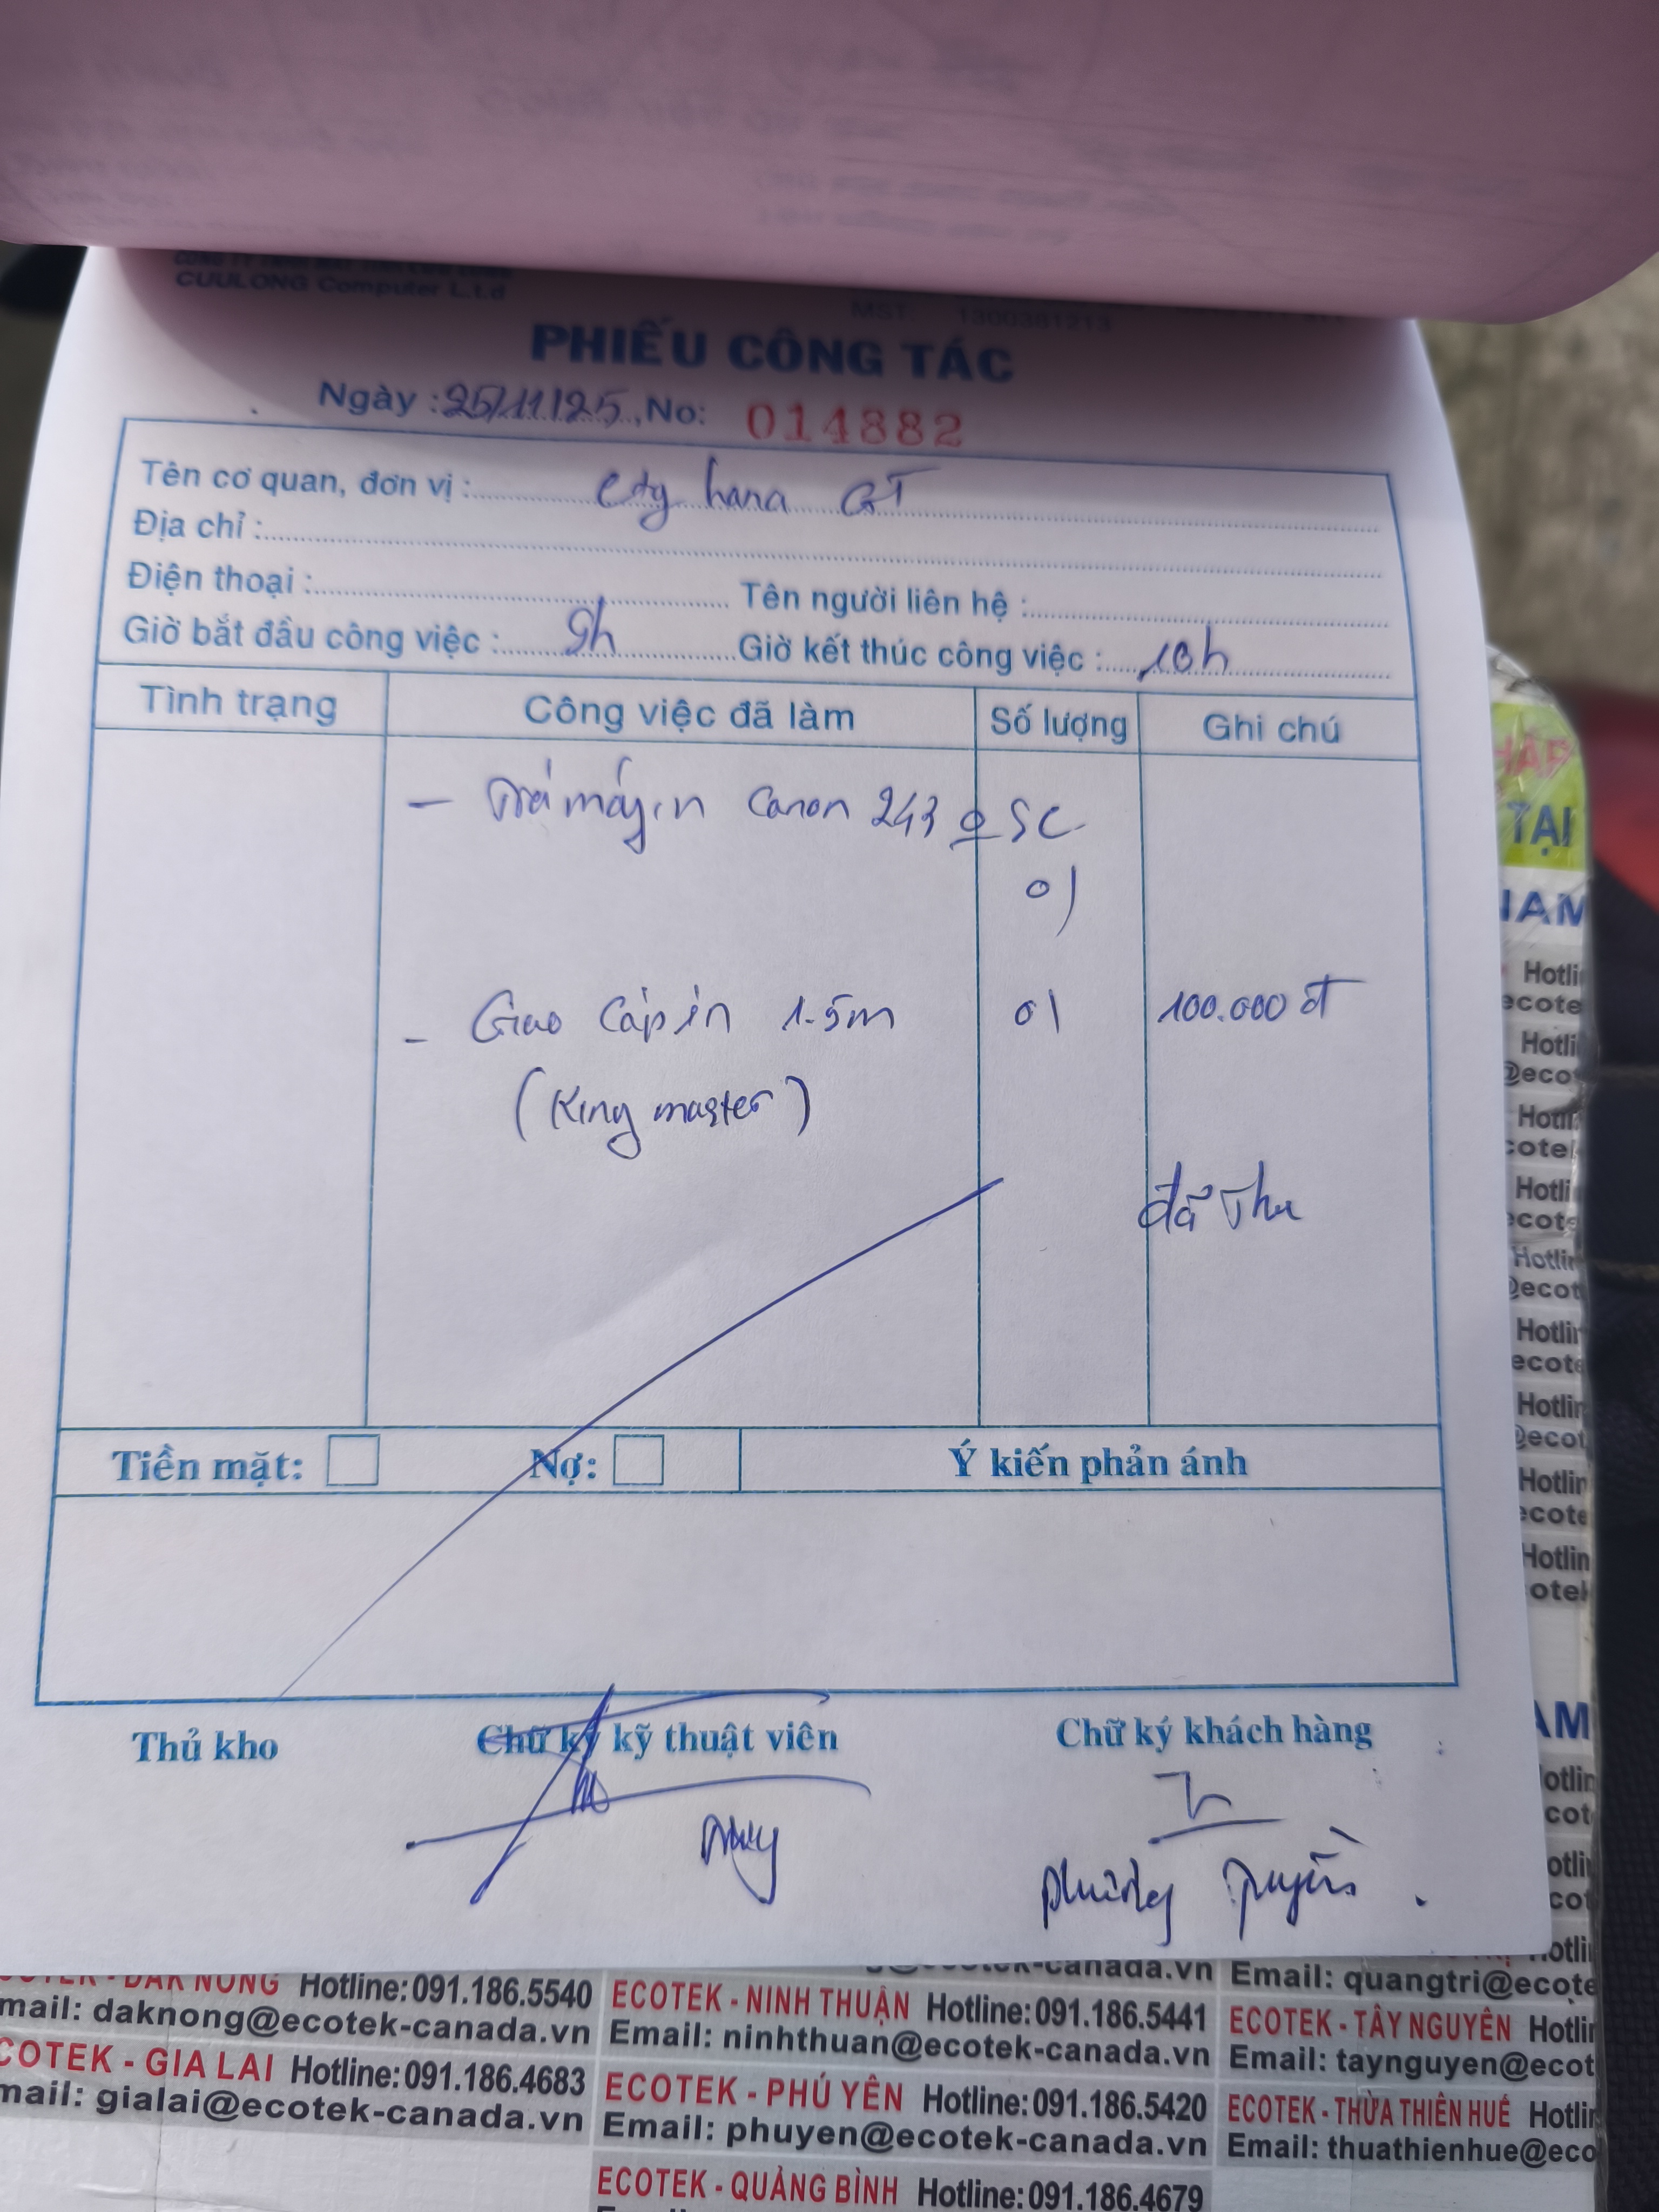 CUULONG Computer L.t.d
MST: 1800381213
PHIẾU CÔNG TÁC
Ngày : 25/11/25, No: 014882
Tên cơ quan, đơn vị : Cty hana GT
Địa chỉ :
Điện thoại : Tên người liên hệ :
Giờ bắt đầu công việc : 9h Giờ kết thúc công việc : 10h
Tình trạng Công việc đã làm Số lượng Ghi chú
- Trả máy in Canon 243 SC
01
- Giao Cáp in 1.5m 01 100.000 đ
(King master)
đã thu
Tiền mặt: Nợ: Ý kiến phản ánh
Thủ kho Chữ ký kỹ thuật viên Chữ ký khách hàng
Phương Quyền
TẠI
NAM
Hotli
ecote
Hotli
@eco
cotek
Hotli
ecote
Hotlin
@ecot
Hotlin
ecote
Hotlin
@ecot
Hotlin
ecote
Hotlin
otek
AM
otlin
cot
otli
co
otli
ECOTEK - DAK NONG Hotline:091.186.5540
mail: daknong@ecotek-canada.vn
COTEK - GIA LAI Hotline:091.186.4683
mail: gialai@ecotek-canada.vn
ecotek-canada.vn
ECOTEK - NINH THUẬN Hotline:091.186.5441
Email: ninhthuan@ecotek-canada.vn
ECOTEK - PHÚ YÊN Hotline:091.186.5420
Email: phuyen@ecotek-canada.vn
ECOTEK - QUẢNG BÌNH Hotline:091.186.4679
Email: quangtri@ecote
ECOTEK - TÂY NGUYÊN Hotlin
Email: taynguyen@ecot
ECOTEK - THỪA THIÊN HUẾ Hotlin
Email: thuathienhue@eco